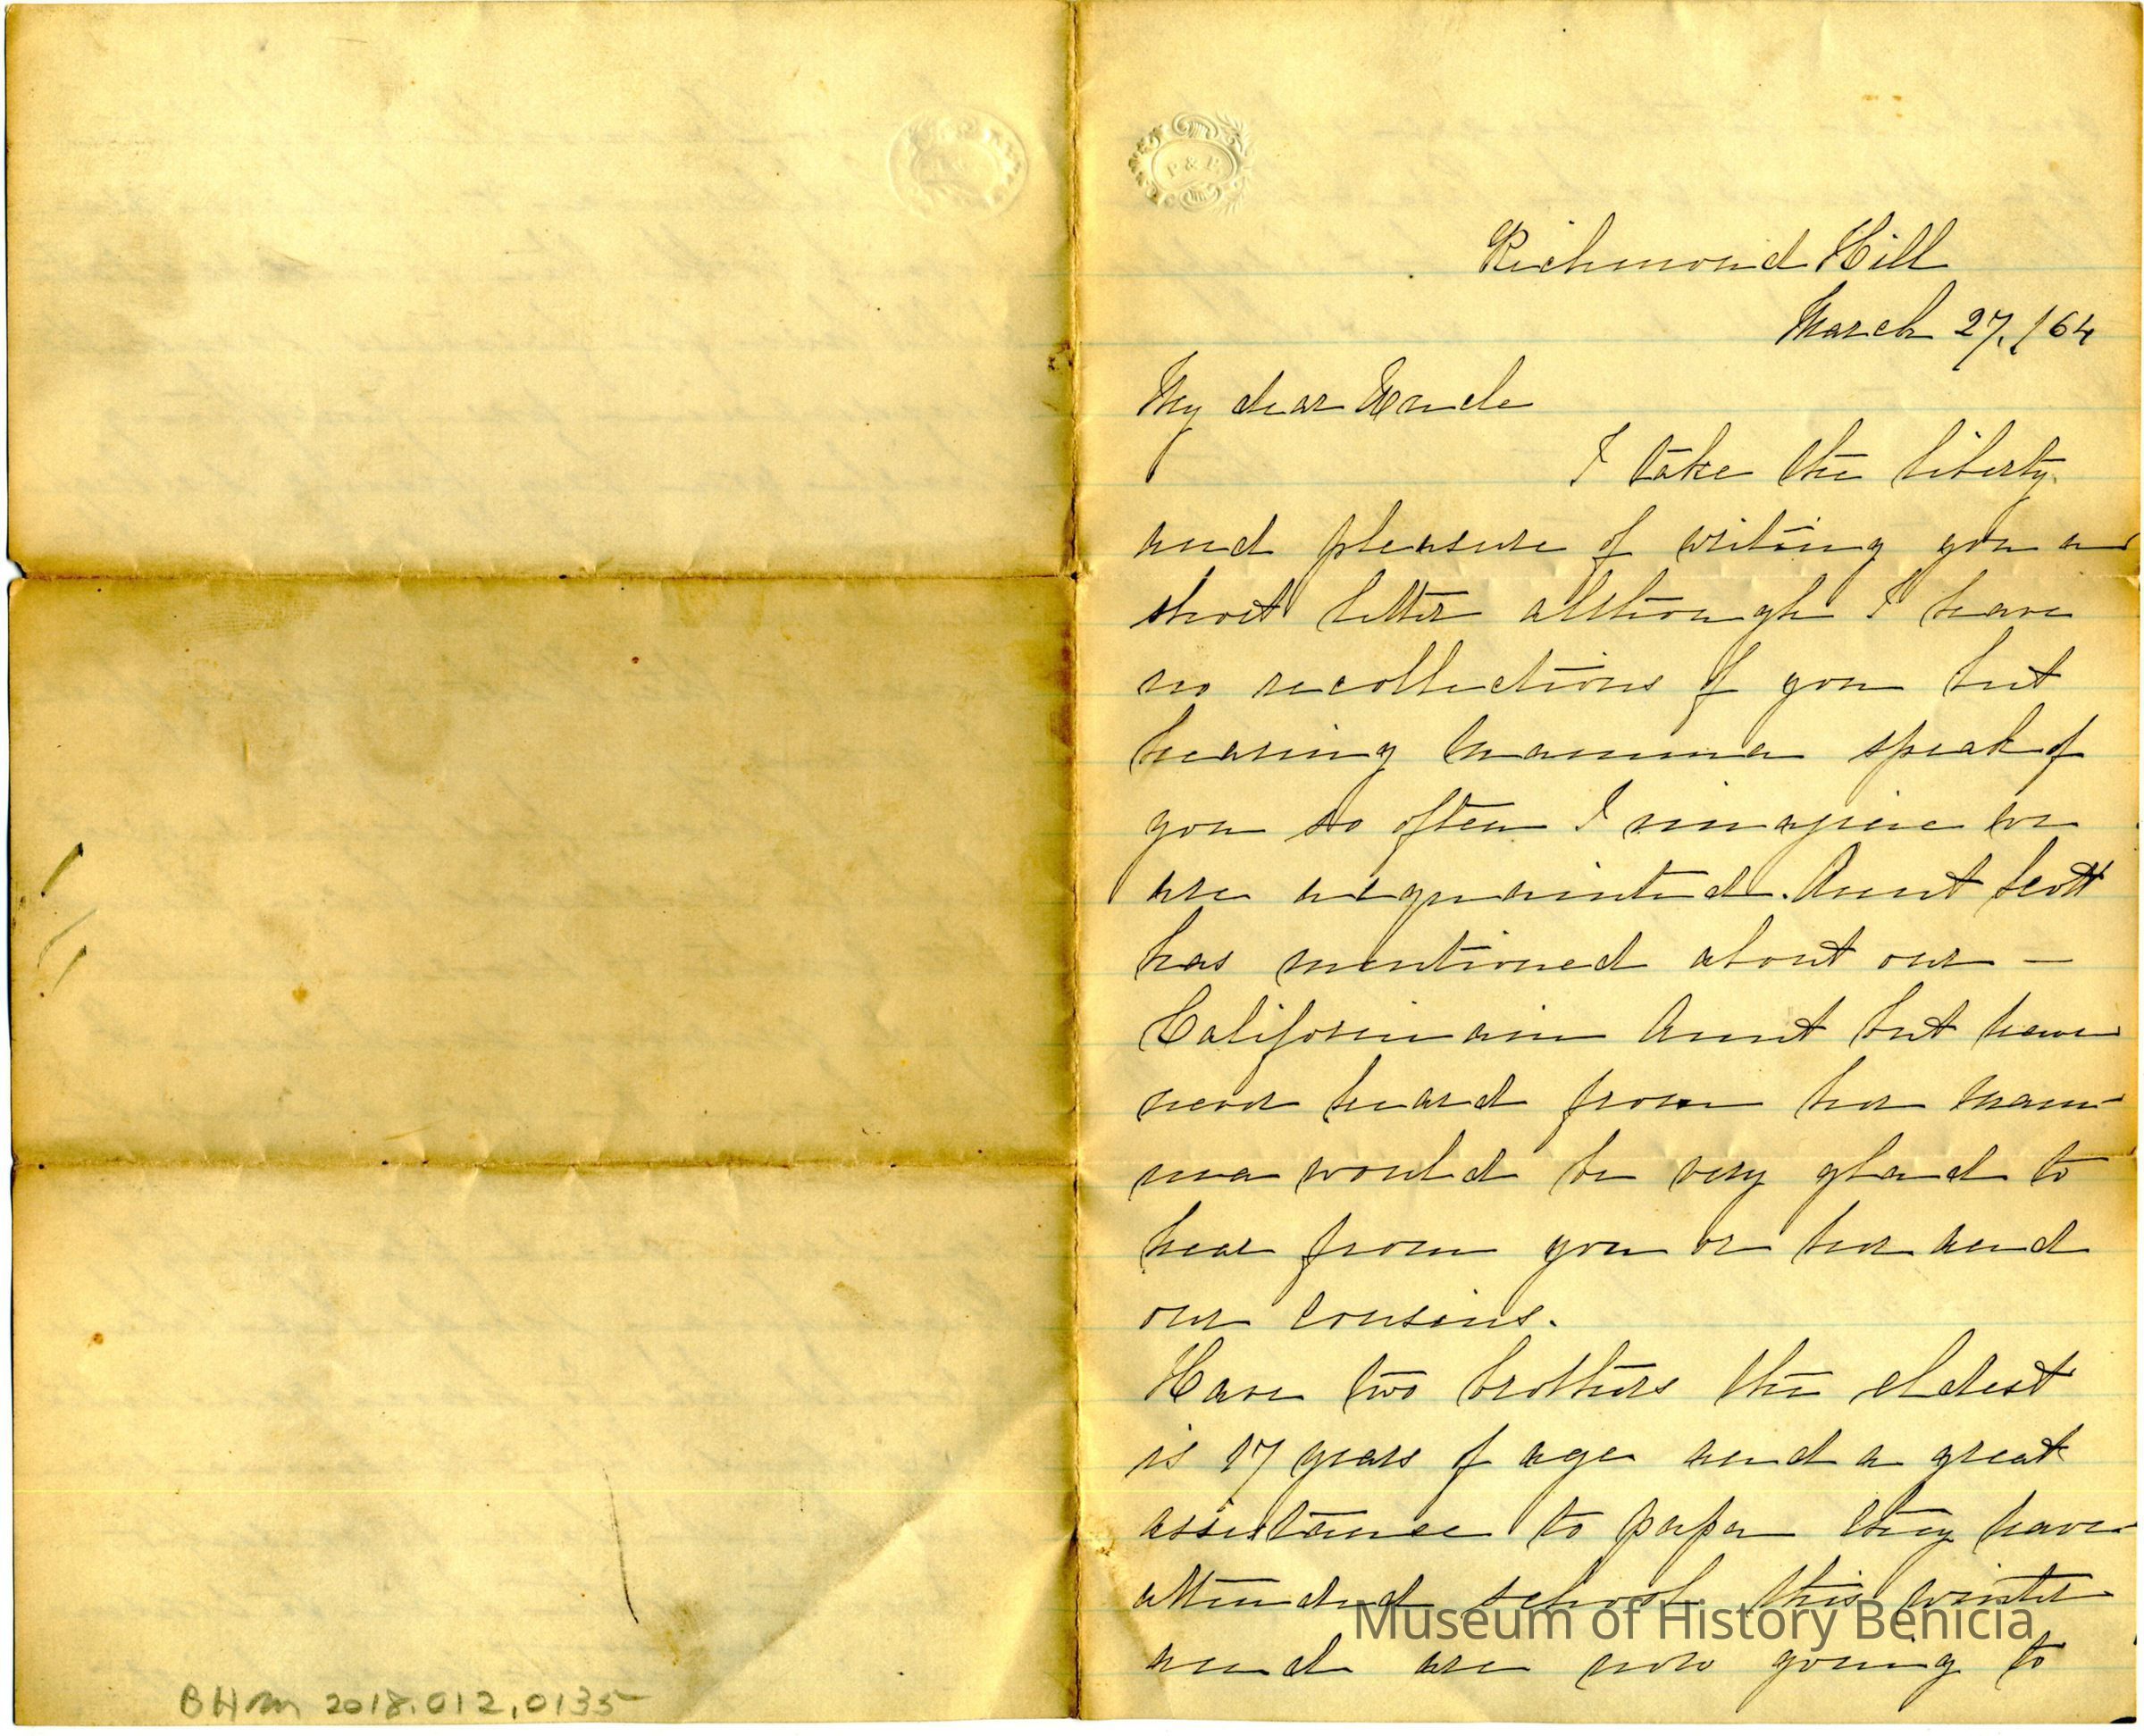 P & P
Richmond Hill
March 27, /64
My dear Uncle
I take the liberty
and pleasure of writing you a
short letter although I have
no recollections of you but
hearing mamma speak of
you so often I immagine we
are acquainted. Aunt Scott
has mentioned about our —
Californiain Aunt but have
never heard from her mam-
ma would be very glad to
hear from you or her and
our cousins.
Have two brothers the eldest
is 17 years of age and a great
assistance to papa they have
attended school this winter
and are now going to
Museum of History Benicia
BHM 2018.012.0135